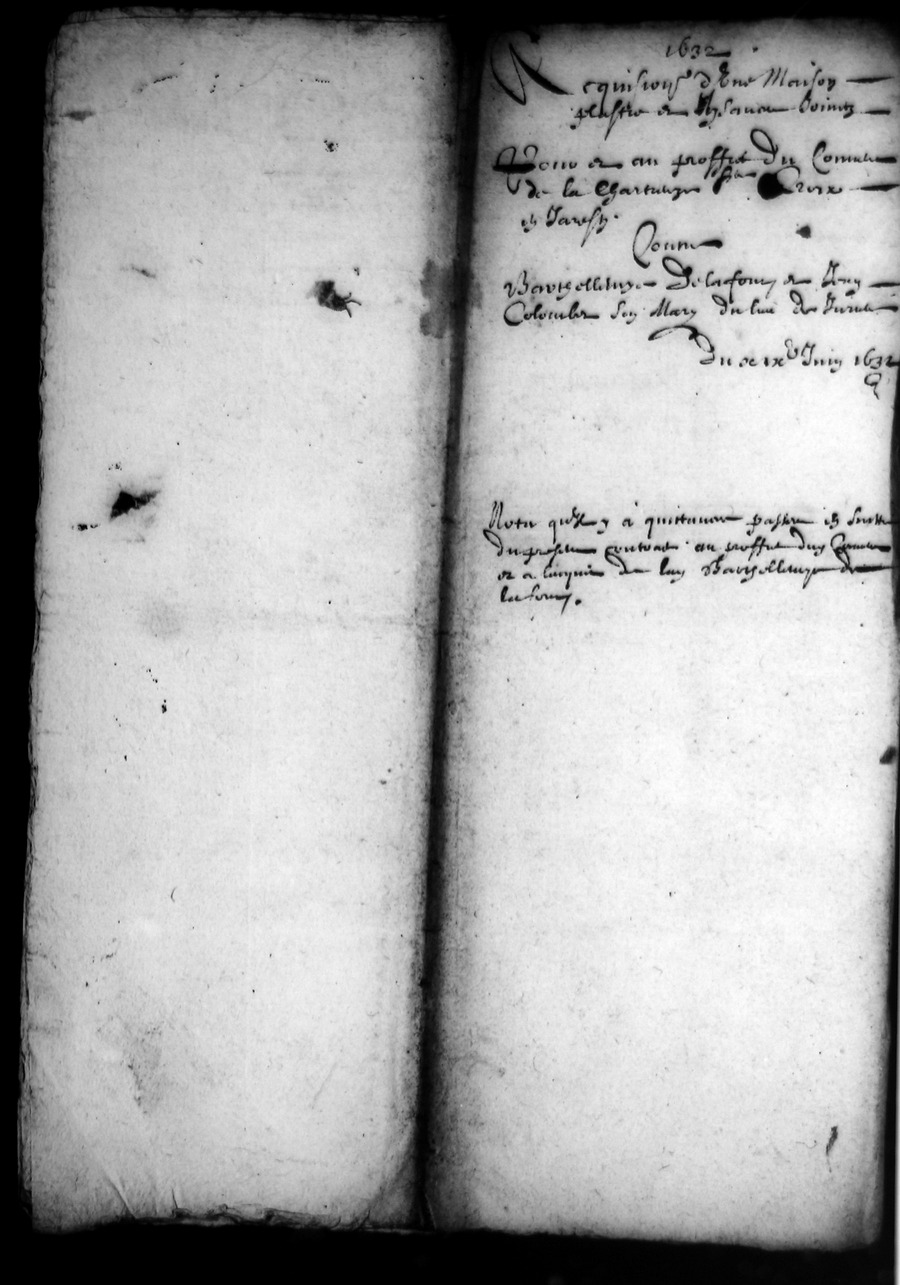 1632
Acquisions d'Une Maison
plastre et Aysance Joints
Pour et au proffit Du Couvent
de la Chartreuze Ste Croix
en Jarests
Contre
Barthellemye Delafont et Jeny
Colombet son Mary du lieu de
Du xixe Juin 1632
Nota qu'il y a quittance passee en suitte
du present contract au proffit dud Couvent
et a lacquit de lad Barthellemye de
lafont.